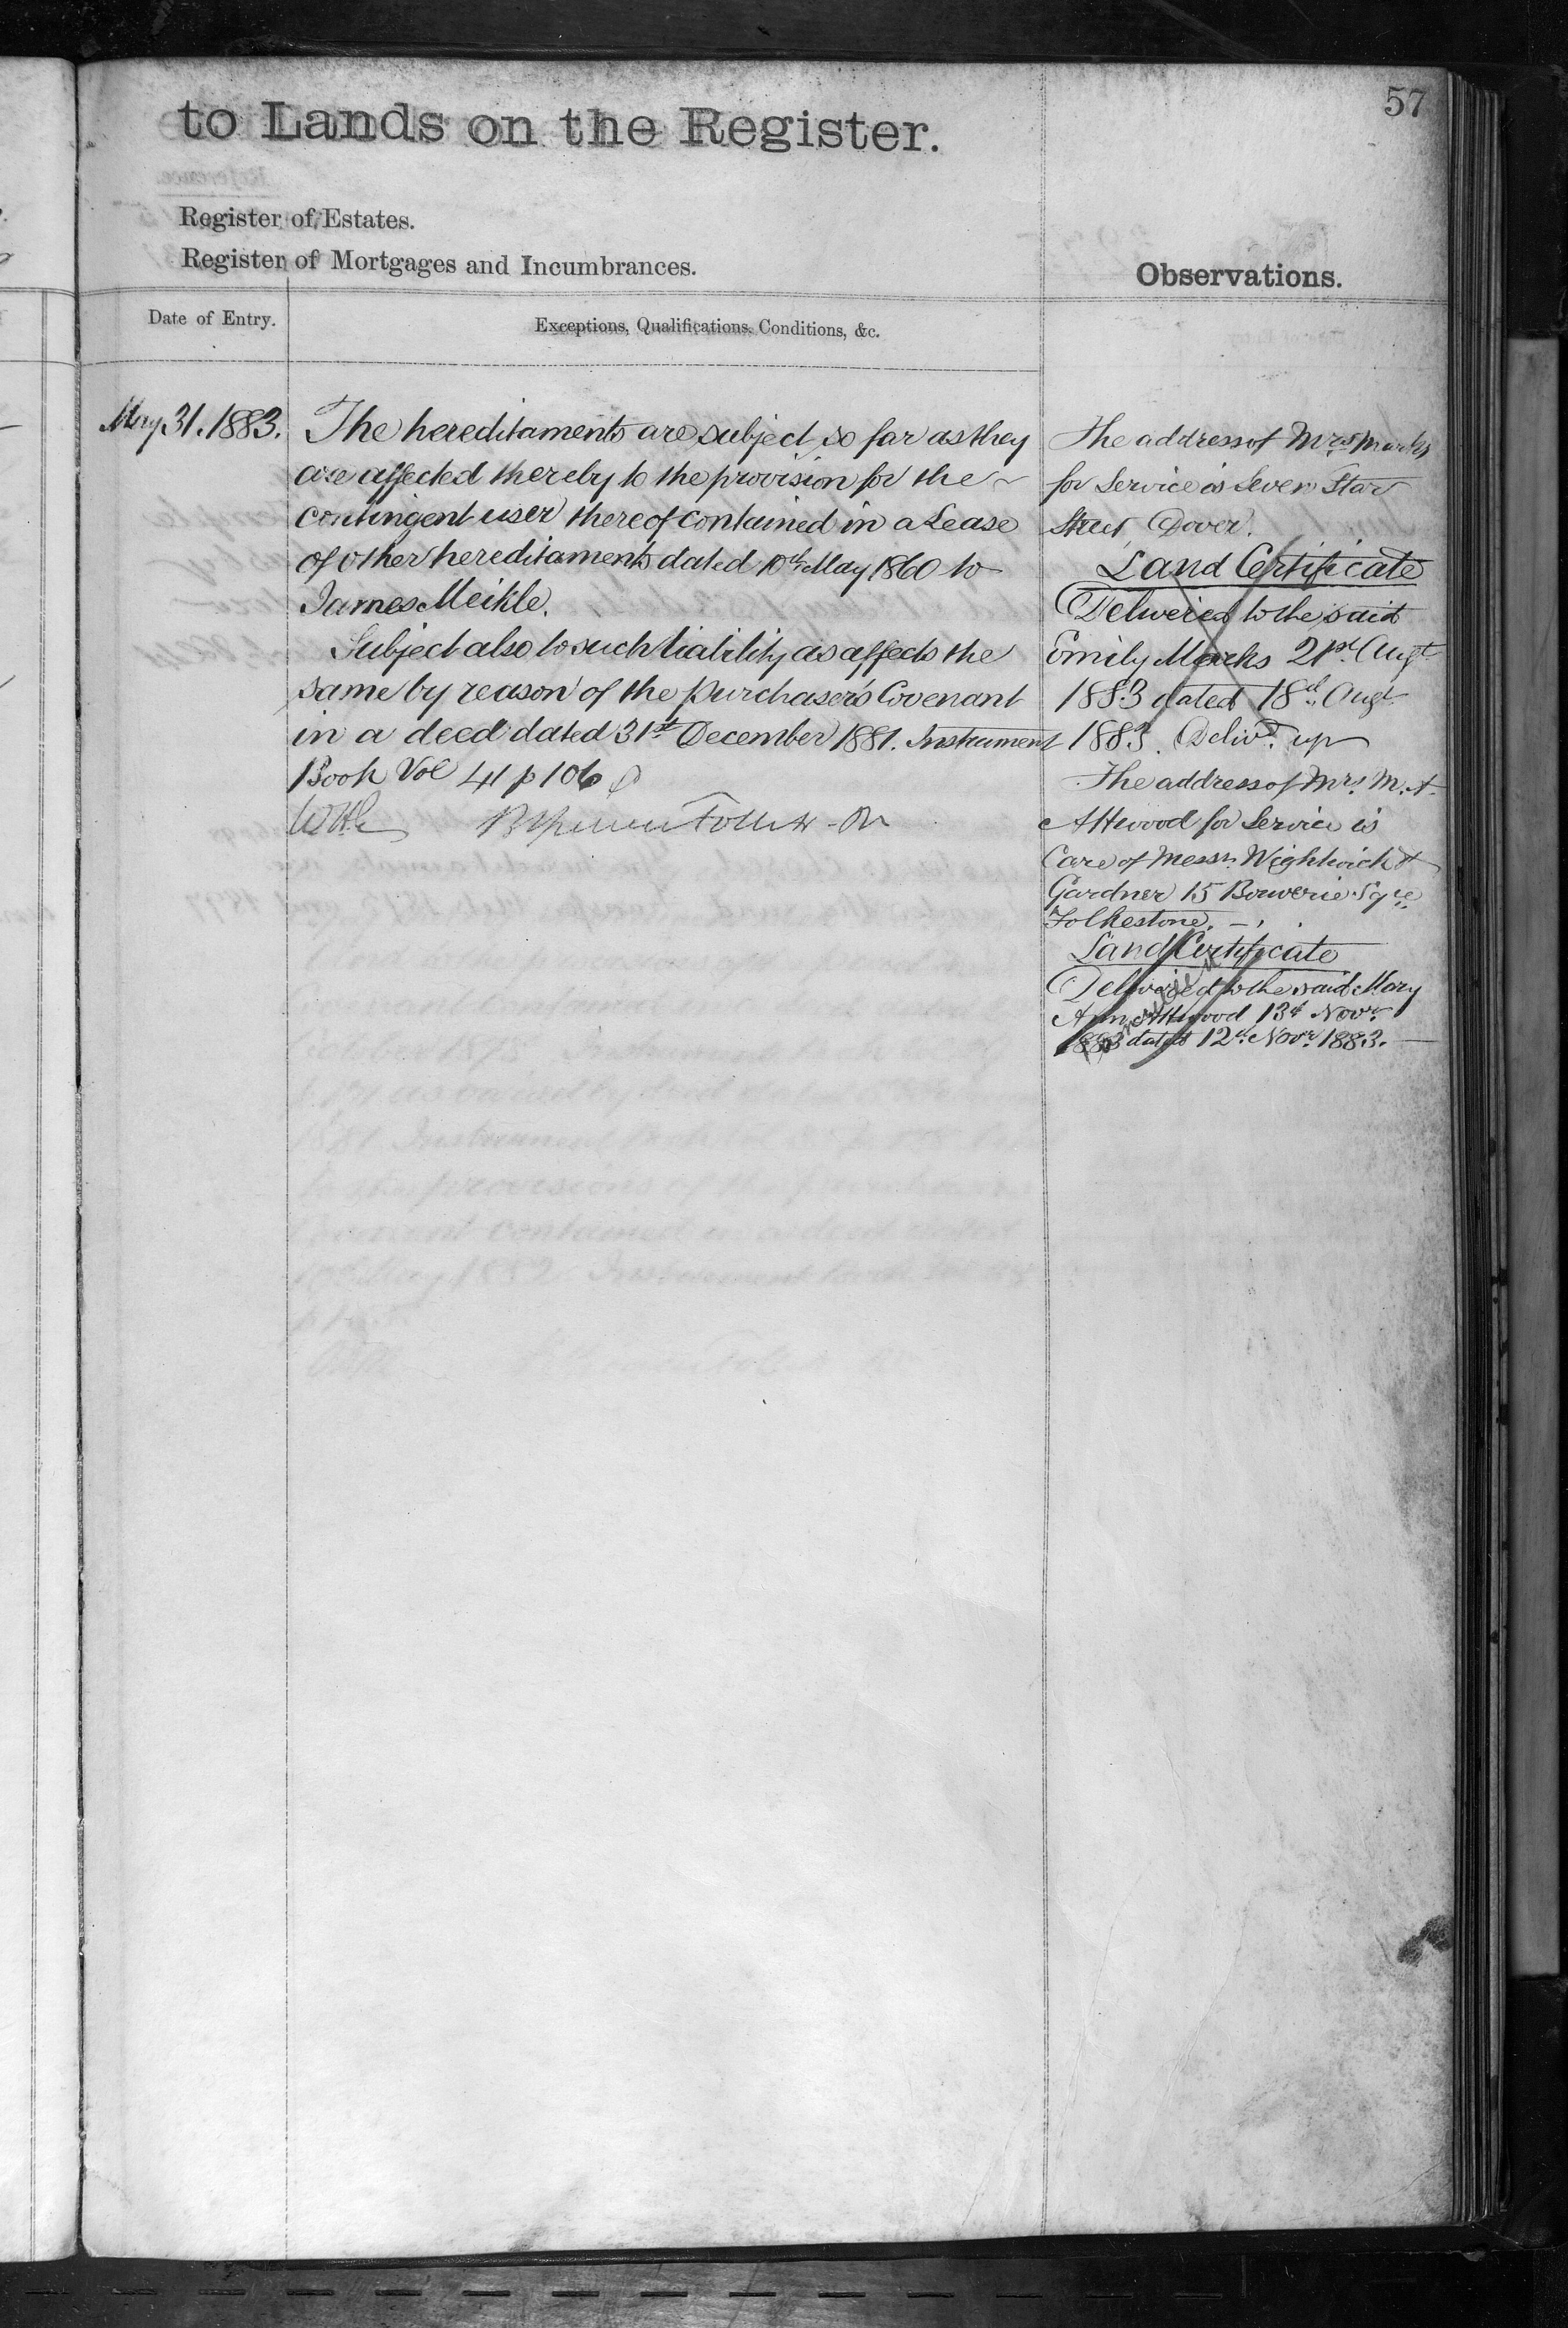 57
to Lands on the Register.
Register of Estates.
Register of Mortgages and Incumbrances.
Observations.
Date of Entry.
Exceptions, Qualifications, Conditions, &c.
May 31. 1883.
The hereditaments are subject so far as they
are affected thereby to the provision for the
contingent user thereof contained in a Lease
of other hereditaments dated 10th May 1860 to
James Meikle.
Subject also to such liability as affects the
same by reason of the purchaser's Covenant
in a deed dated 31st December 1881. Instrument
Book Vol 41 p 106
The address of Mrs. Marks
for Service is Seven Star
Street, Dover.
Land Certificate
Delivered to the said
Emily Marks 21st Augt
1883 dated 18th Augt
1883. Delivd. up
The address of Mrs. M. A.
Attwood for Service is
Care of Messrs. Wightwick &
Gardner 15 Bouverie Sqre
Folkestone.
Land Certificate
Delivered to the said Mary
Ann Attwood 13th Novr.
1883 dated 12th Novr. 1883.